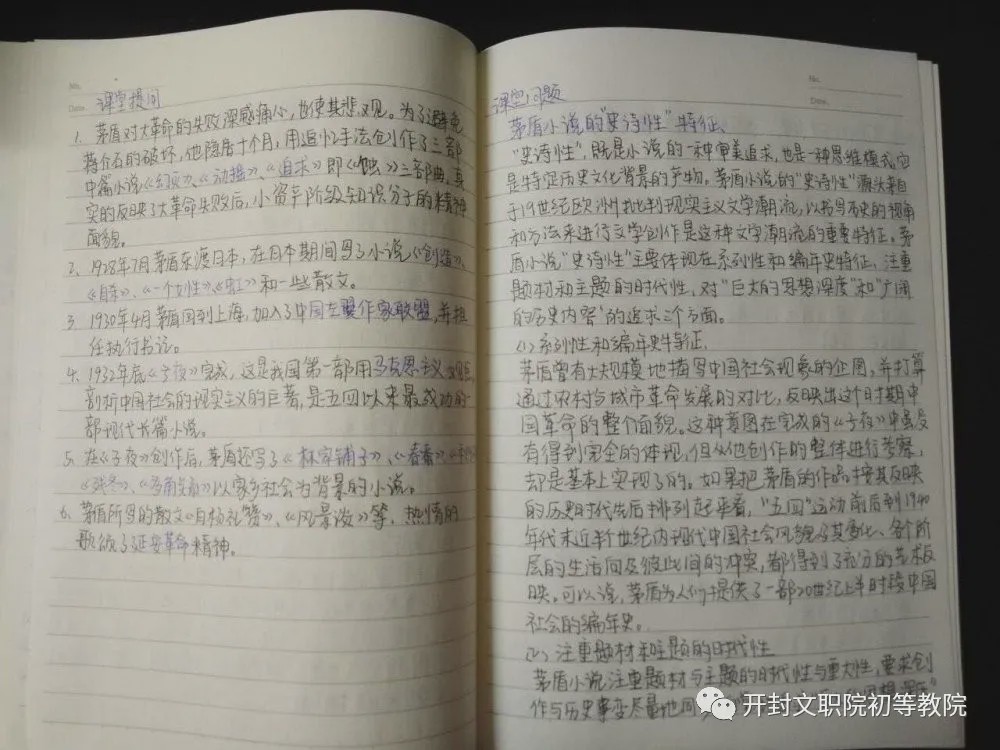 No.
Date.
课堂提问
1. 茅盾对大革命的失败深感痛心,也使其悲观。为了避免
蒋介石的破坏,他隐居十个月,用追忆手法创作了三部
中篇小说《幻灭》、《动摇》、《追求》即《蚀》三部曲。真
实的反映了大革命失败后,小资产阶级知识分子的精神
面貌。
2. 1928年7月茅盾东渡日本,在日本期间写了小说《创造》、
《自杀》、《一个女性》、《虹》和一些散文。
3. 1930年4月茅盾回到上海,加入了中国左翼作家联盟,并担
任执行书记。
4. 1932年底《子夜》完成,这是我国第一部用马克思主义
剖析中国社会的现实主义的巨著,是五四以来最成功的
部现代长篇小说。
5. 在《子夜》创作后,茅盾还写了《林家铺子》、《春蚕》、
《残冬》、以家乡社会为背景的小说。
6. 茅盾所写的散文《白杨礼赞》、《风景谈》等,热情的
歌颂了延安革命精神。
No.
Date.
课堂问题
茅盾小说的"史诗性"特征、
"史诗性",既是小说的一种审美追求,也是一种思维模式,它
是特定历史文化背景的产物。茅盾小说的"史诗性"源头来自
于19世纪欧洲批判现实主义文学潮流,以书写历史的视角
和方法来进行文学创作是这种文学潮流的重要特征。茅
盾小说"史诗性"主要体现在系列性和编年史特征,注重
题材和主题的时代性,对"巨大的思想深度"和"广阔
的历史内容"的追求三个方面。
(1) 系列性和编年史特征.
茅盾曾有大规模地描写中国社会现象的企图,并打算
通过农村与城市革命发展的对比,反映出这个时期中
国革命的整个面貌。这种意图在完成的《子夜》中虽没
有得到完全的体现,但从他创作的整体进行考察,
却是基本上实现了的。如果把茅盾的作品按其反映
的历史时代先后排列起来看,"五四"运动前后到1940
年代末近半个世纪内现代中国社会风貌及其变化、各个阶
层的生活向及彼此间的冲突,都得到了充分的艺术反
映。可以说,茅盾为人们提供了一部20世纪上半时段中国
社会的编年史。
(2) 注重题材和主题的时代性
茅盾小说注重题材与主题的时代性与重大性,要求创
作与历史事变尽量地同
开封文职院初等教院